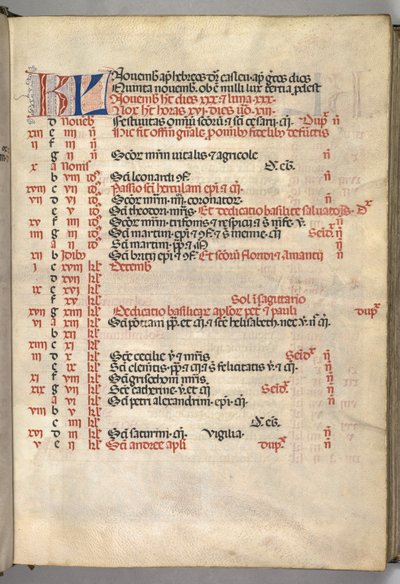 KL Novemb ap hebreos dr casleu ap grecos dies
Quinta novemb. ob e milli lux tertia pdest
Novemb ht dies xxx et luna xxx.
Nox ht horas xvi dies v̄o viii
d Noveb Festivitas omiū scōrū et sc̄i cesarii. m̄. Dupˣ n̄
xiii e iiii n̄ Hic fit offm gnale. p omib fidelib defūctis
ii f iii n̄
g ii n̄ Sc̄or mm vitalis et agricole
x a Non
b viii id Sc̄i leonardi 9f.
xviii c vii id Passio sc̄i herculani epi et m̄.
vii d vi id Sc̄or mm .iiii. coronator.
e v id Sc̄i theodori mris Et dedicatio basilice salvatoris. D
xv f iiii id Sc̄or mm trifonis et respicii et s nimfe v.
iiii g iii id Sc̄i martini epi et 9f. et s menne m̄. n̄
a ii id Sc̄i martini pp et m̄
xii b Idib Sc̄i britii epi et 9f Et scorū floridi et amantii n̄
i c xviii kl Decemb
d xvii kl
ix e xvi kl
f xv kl Sol ī sagitario
xvii g xiiii kl Dedicatio basilicar aplor petri et pauli dupˣ
vi a xiii kl Sc̄i pōtiani pp. et m̄. et sc̄e helisabeth.
b xii kl
xiiii c xi kl
iii d x kl Sc̄e cecilie v et mris
e viiii kl Sc̄i clemētis pp et m̄ et s felicitatis v et m̄. n̄
xi f viii kl Sc̄i grisogoni mris.
xix g vii kl Sc̄e catherine v. et m̄ n̄
a vi kl Sc̄i petri alexandrini. epi. m̄.
viii b v kl
c iiii kl
xvi d iii kl Sc̄i saturnini m̄. Vigilia n̄
v e ii kl Sc̄i andree apli dupˣ n̄